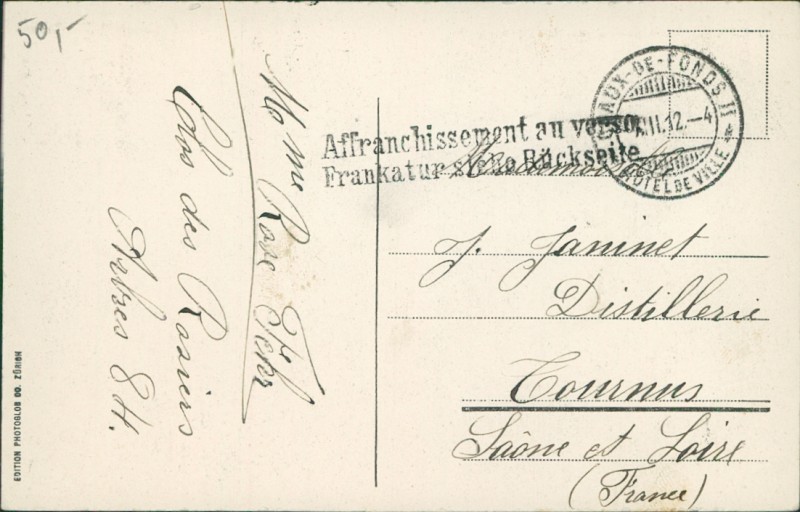 50,-
Mme Rose Feher
Clos des Rosiers
Arbres 84.
EDITION PHOTOGLOB CO. ZÜRICH
AUX-DE-FONDS II
II.12.-4
HOTEL DE VILLE
Affranchissement au verso
Frankatur siehe Rückseite
Mademoiselle
J. Janinet
Distillerie
Tournus
Saône et Loire
(France)